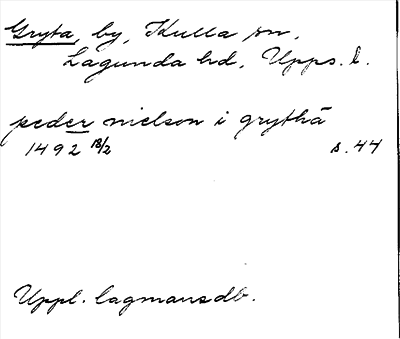 Gryta, by, Kulla sn,
Lagunda hd, Upps. l.
peder nielson i grythā
1492 18/2 s. 44
Uppl. lagmansdb.